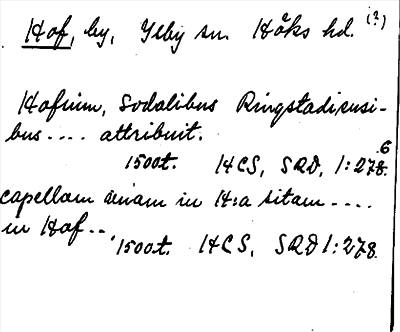 Hof, by, Ysby sn Höks hd. (?)
Hofuim, Sodalibus Ringstadiensi-
bus .... attribuit.
1500t. HCS, SRD, 1:278.6
capellam unam in H:a sitam ....
in Hof ...
1500t. HCS, SRD 1:278.